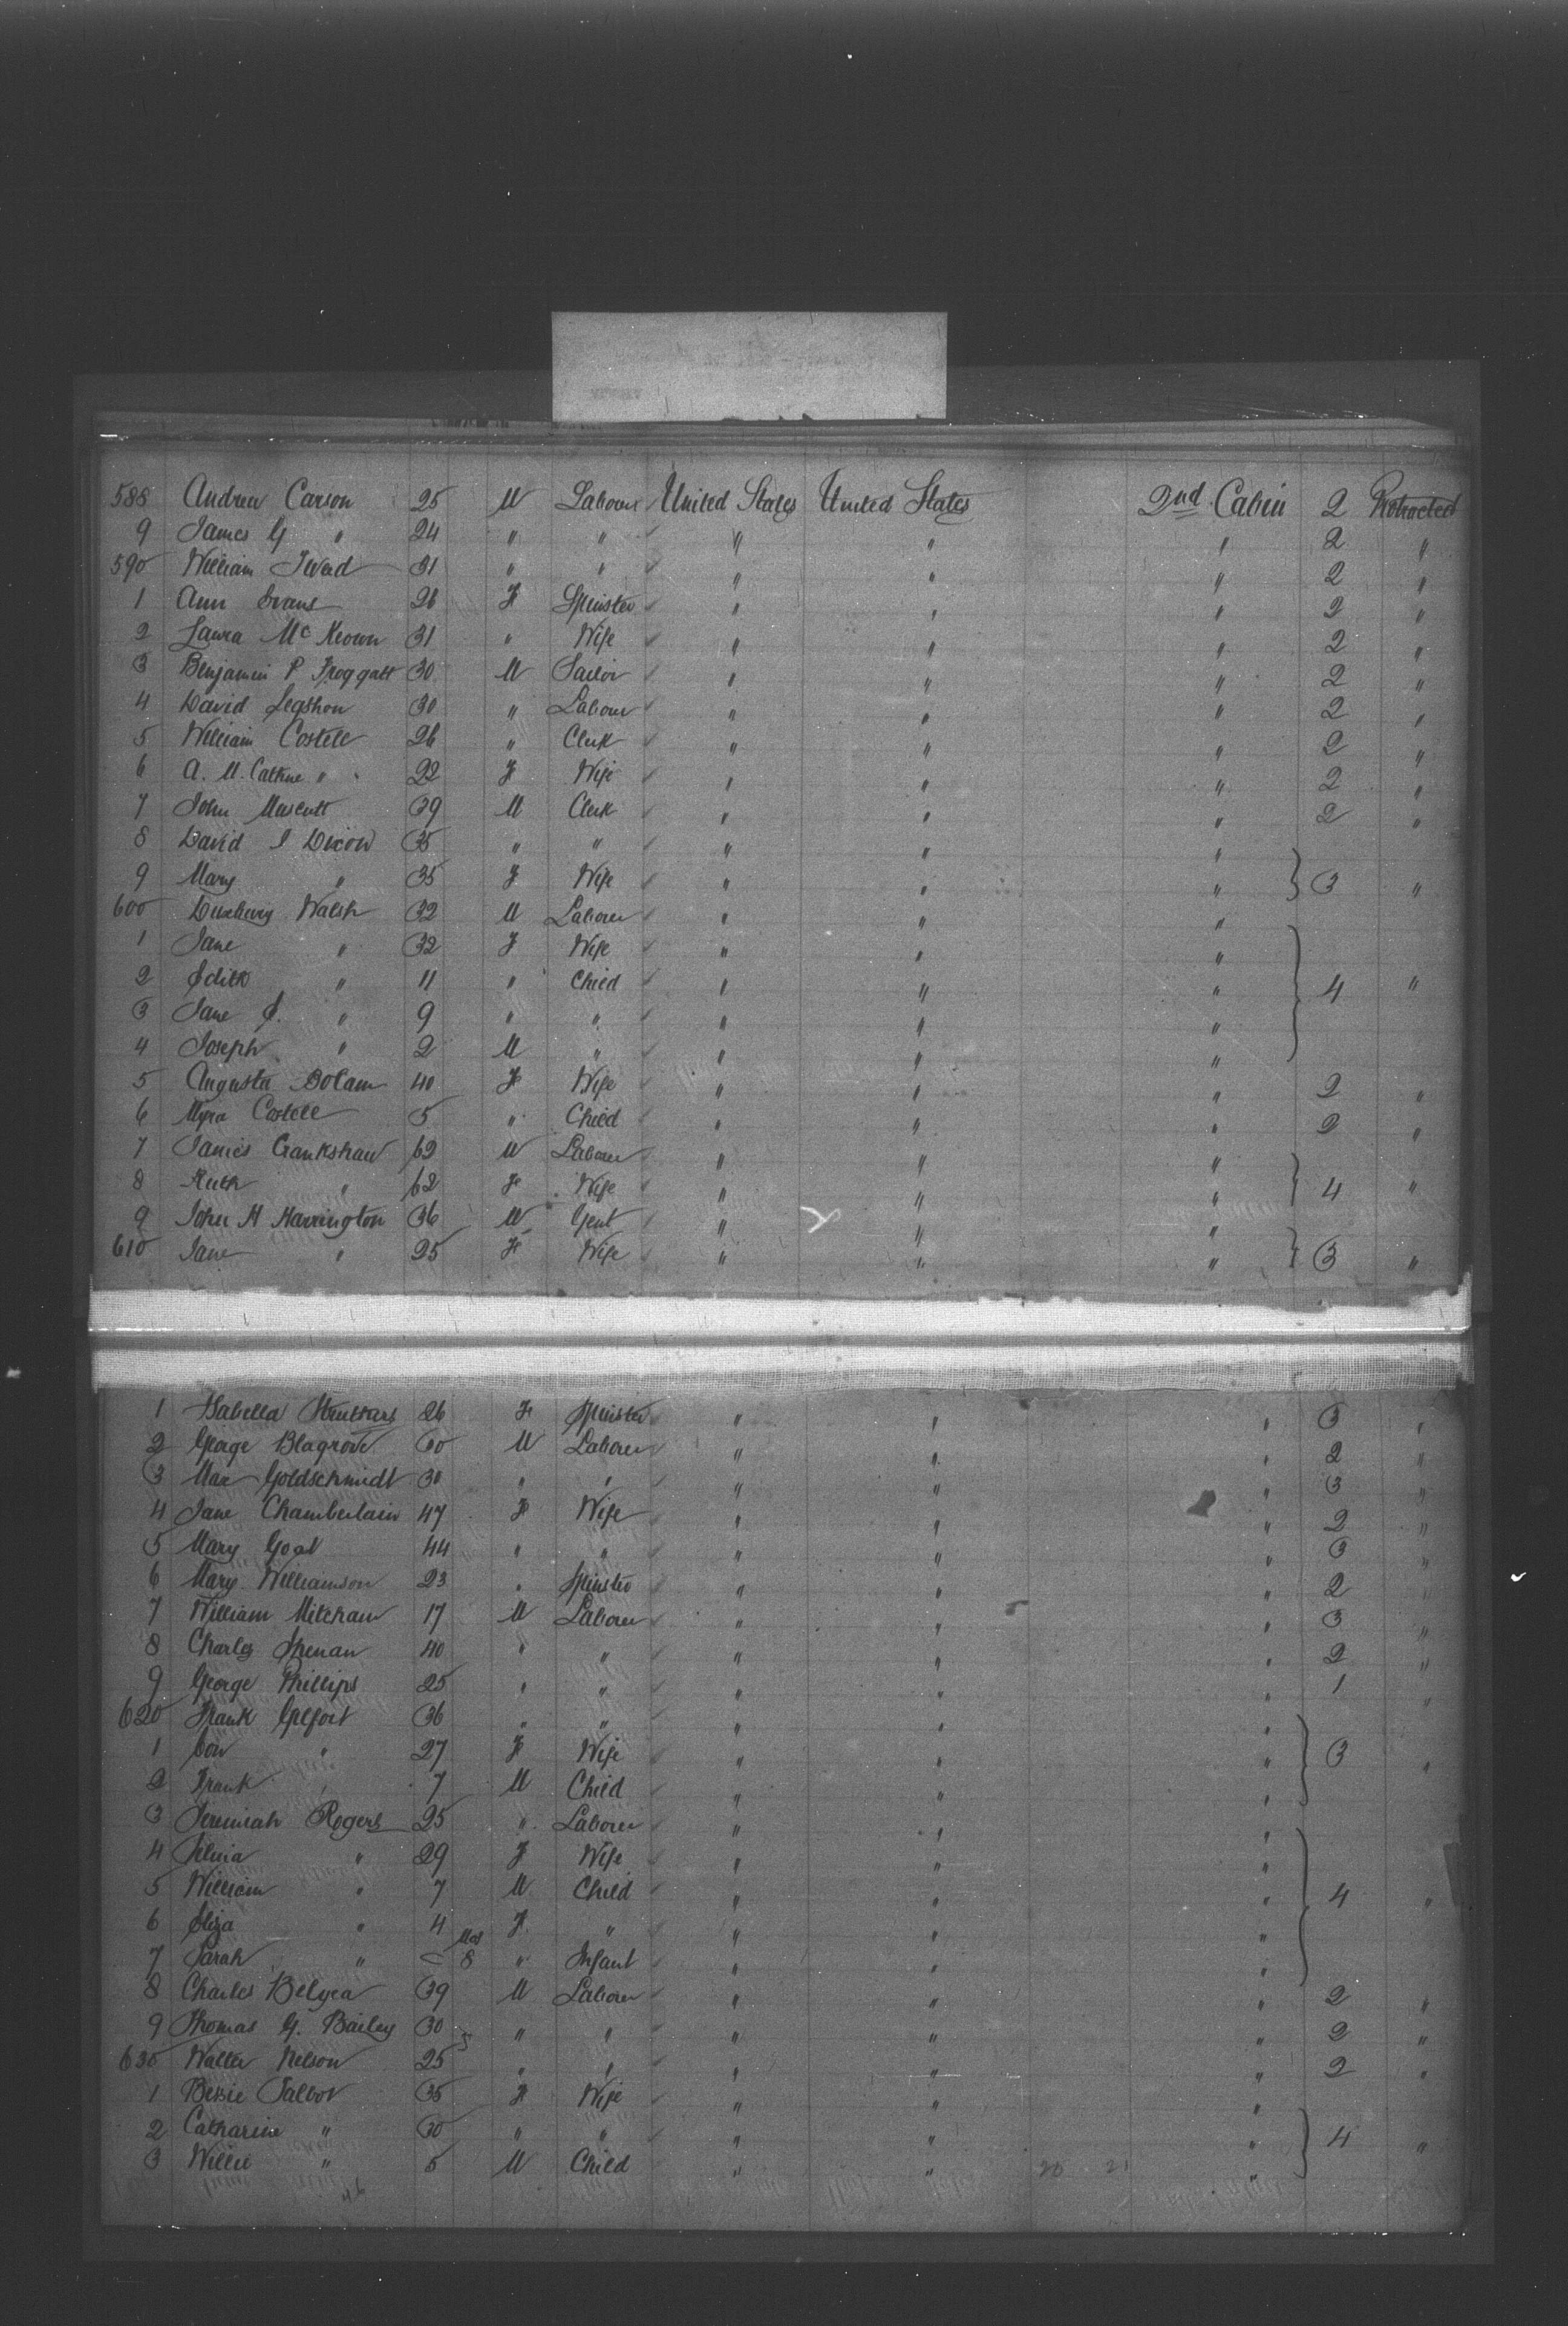 588 Andrew Carson 25 M Labourer United States United States 2nd Cabin 2 Protracted
9 James G " 24 " " " " " 2 "
590 William 31 " " " " " 2 "
1 Ann Evans 26 F Spinster " " " 2 "
2 Laura McKeown 31 " Wife " " " 2 "
3 Benjamin P Froggatt 30 M Sailor " " " 2 "
4 David 30 " Labourer " " " 2 "
5 William Costele 26 " Clerk " " " 2 "
6 A. M. " 22 F Wife " " " 2 "
7 John 39 M Clerk " " " 2 "
8 David I Dixon 35 " " " " "
9 Mary " 35 F Wife " " " 3 "
600 Duxbury Walsh 32 M Laborer " " "
1 Jane " 32 F Wife " " "
2 Edith " 11 " Child " " " 4 "
3 Jane E. " 9 " " " " "
4 Joseph " 2 M " " " "
5 Augusta Bolam 40 F Wife " " " 2 "
6 Myra Costele 5 " Child " " " 2 "
7 James Crankshaw 62 M Laborer " " "
8 Ruth " 62 F Wife " " " 4 "
9 John H Harrington 36 M Gent " " "
610 Jane " 25 F Wife " " " 3 "
1 Isabella 26 F Spinster " " " 3 "
2 George Blagrove 60 M Laborer " " " 2 "
3 Max Goldschmidt 30 " " " " " 3 "
4 Jane Chamberlain 47 F Wife " " " 2 "
5 Mary 44 " " " " " 3 "
6 Mary Williamson 23 " Spinster " " " 2 "
7 William Mitcham 17 M Laborer " " " 3 "
8 Charles 40 " " " " " 2 "
9 George Phillips 25 " " " " " 1 "
620 Frank 36 " " " " "
1 " 27 F Wife " " " 3 "
2 Frank " 7 M Child " " "
3 Jeremiah Rogers 25 " Laborer " " "
4 " 29 F Wife " " "
5 William " 7 M Child " " " 4 "
6 Eliza " 4 F " " " "
7 Sarah " Mos 8 " Infant " " "
8 Charles Belyea 39 M Laborer " " " 2 "
9 Thomas G. Bailey 30 " " " " " 2 "
630 Walter Nelson 25 " " " " " 2 "
1 Bessie Talbot 35 F Wife " " "
2 Catharine " 30 " " " " " 4 "
3 Willie " 5 M Child " " "
20 21
46